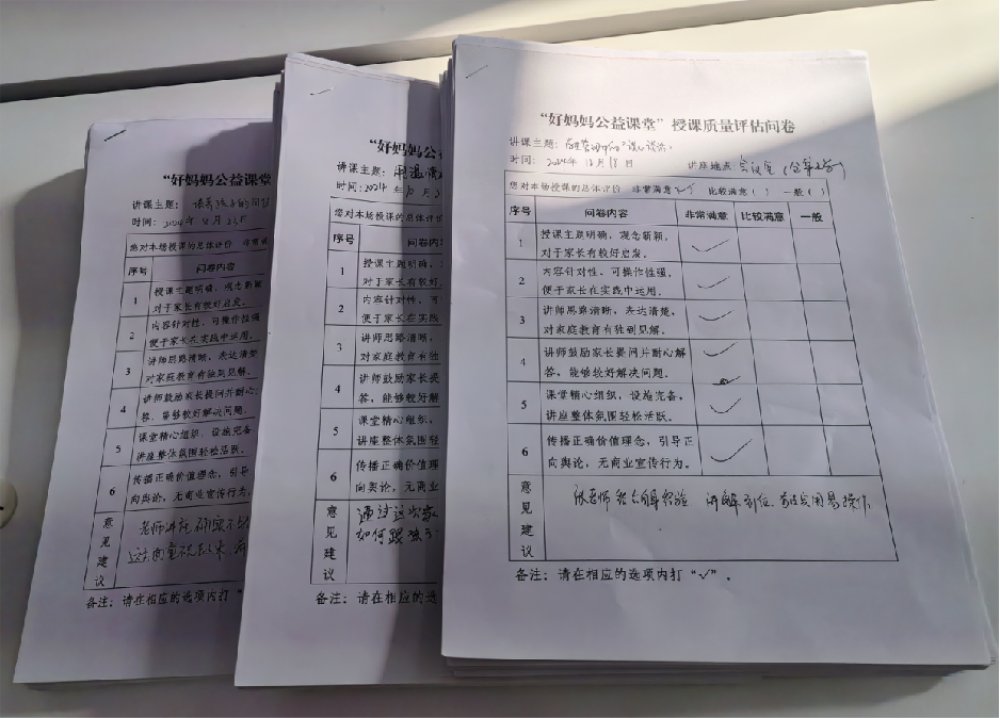 “好妈妈公益课堂
讲课主题：
时间：2024年 月23日
您对本场授课的总体评价 非常满
序号 问卷内容
1 授课主题明确，观念新颖
对于家长有较好启发。
2 内容针对性，可操作性强
便于家长在实践中运用。
3 讲师思路清晰，表达清楚
对家庭教育有独到见解。
4 讲师鼓励家长提问并耐心
答，能够较好解决问题。
5 课堂精心组织，设施完备
讲座整体氛围轻松活跃。
6 传播正确价值理念，引导
向舆论，无商业宣传行为。
意见建议
老师讲
备注：请在相应的选项内打“
“好妈妈公益
讲课主题：
时间：2024年10月
您对本场授课的总体评
序号 问卷内
1 授课主题明确，
对于家长有较好
2 内容针对性，可
便于家长在实践
3 讲师思路清晰，
对家庭教育有独
4 讲师鼓励家长提
答，能够较好解
5 课堂精心组织，
讲座整体氛围轻
6 传播正确价值理
向舆论，无商业
意见建议
通过这次家
如何跟孩子
备注：请在相应的选
“好妈妈公益课堂”授课质量评估问卷
讲课主题：
时间：2024年12月18日 讲座地点：会议室
您对本场授课的总体评价 非常满意（✓） 比较满意（ ） 一般（ ）
序号 问卷内容 非常满意 比较满意 一般
1 授课主题明确，观念新颖，
对于家长有较好启发。 ✓
2 内容针对性，可操作性强，
便于家长在实践中运用。 ✓
3 讲师思路清晰，表达清楚，
对家庭教育有独到见解。 ✓
4 讲师鼓励家长提问并耐心解
答，能够较好解决问题。 ✓
5 课堂精心组织，设施完备，
讲座整体氛围轻松活跃。 ✓
6 传播正确价值理念，引导正
向舆论，无商业宣传行为。 ✓
意见建议
张老师 讲解到位 实用易操作
备注：请在相应的选项内打“✓”。